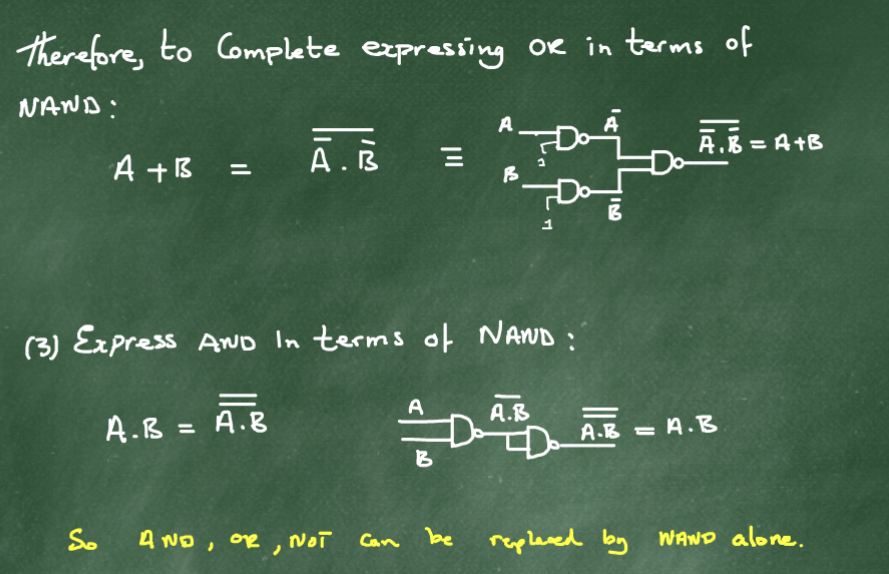 Therefore, to Complete expressing OR in terms of
NAND:
A + B = \overline{\bar{A} . \bar{B}} ≡
A Ā \overline{\bar{A}.\bar{B}} = A+B
1
B
1 B̄
(3) Express AND In terms of NAND:
A.B = \overline{\overline{A.B}}
A \overline{A.B} \overline{\overline{A.B}} = A.B
B
So AND, OR, NOT can be replaced by NAND alone.